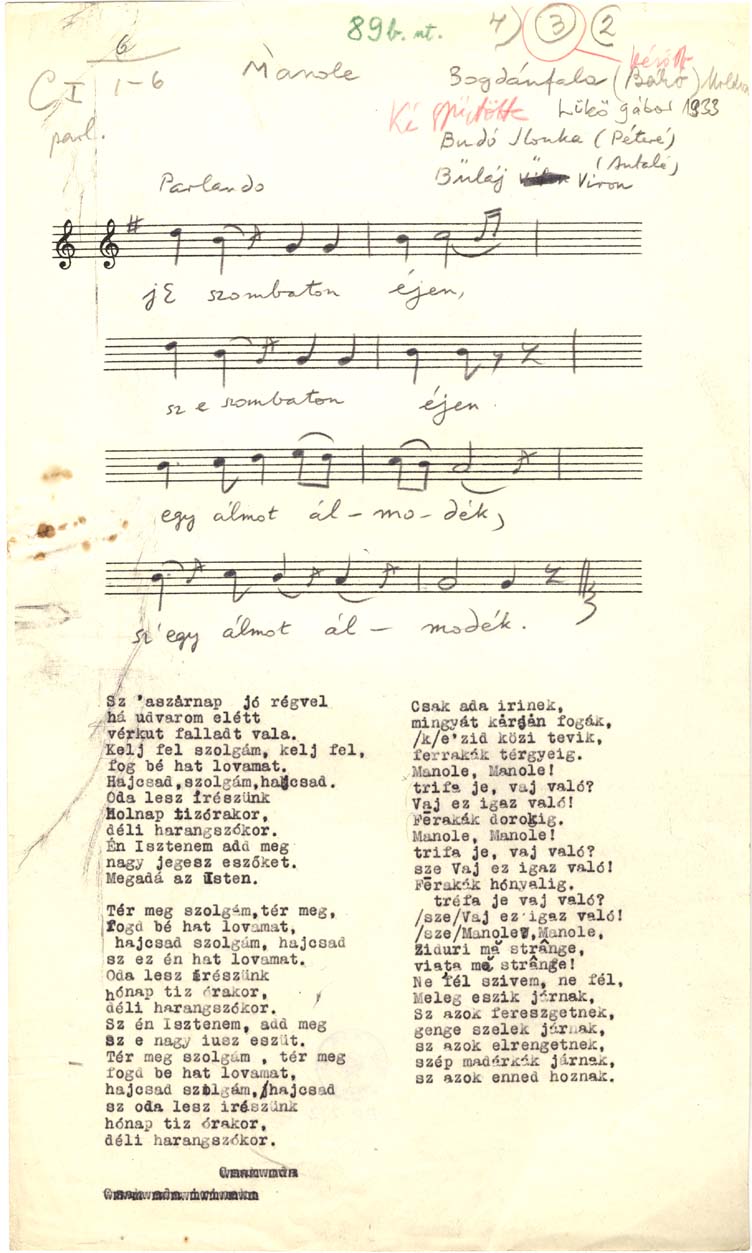 89b. nt.
4) 3 2
6
C I 1-6
Manole
Bogdánfala (Bákó) Moldva
Lükő Gábor 1933
parl.
Budó Ilonka (Péteré)
(Antalé)
Parlando
jE szombaton éjen,
sz e szombaton éjen.
egy álmot ál - mo - dék,
sz' egy álmot ál - modék.
Sz 'aszárnap jó régvel
há udvarom elétt
vérkut falladt vala.
Kelj fel szolgám, kelj fel,
fog bé hat lovamat.
Hajcsad,szolgám,hajcsad.
Oda lesz írészünk
Holnap tizórakor,
déli harangszókor.
Én Isztenem add meg
nagy jegesz eszőket.
Megadá az Isten.
Tér meg szolgám,tér meg,
fogd bé hat lovamat,
hajcsad szolgám, hajcsad
sz ez én hat lovamat.
Oda lesz írészünk
hónap tiz órakor,
déli harangszókor.
Sz én Isztenem, add meg
sz e nagy iusz eszüt.
Tér meg szolgám , tér meg
fogd be hat lovamat,
hajcsad szolgám,/hajcsad
sz oda lesz irészünk
hónap tiz órakor,
déli harangszókor.
Csak ada irinek,
mingyát kárján fogák,
/k/e'zid közi tevik,
ferrakák térgyeig.
Manole, Manole!
trifa je, vaj való?
Vaj ez igaz való!
Fērakák dorokig.
Manole, Manole!
trifa je, vaj való?
sze Vaj ez igaz való!
Fērakák hónyalig.
tréfa je vaj való?
/sze/Vaj ez igaz való!
/sze/Manole,Manole,
Ziduri mă strânge,
viața mă strânge!
Ne fél szivem, ne fél,
Meleg eszik járnak,
Sz azok fereszgetnek,
genge szelek járnak,
sz azok elrengetnek,
szép madárkák járnak,
sz azok enned hoznak.